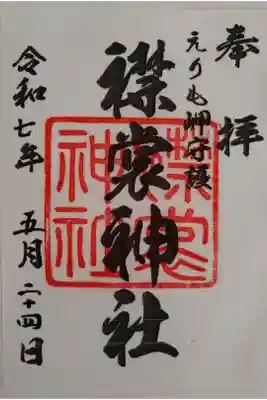 奉拝
えりも岬守護
襟裳神社
襟裳
神社
令和七年 五月二十四日